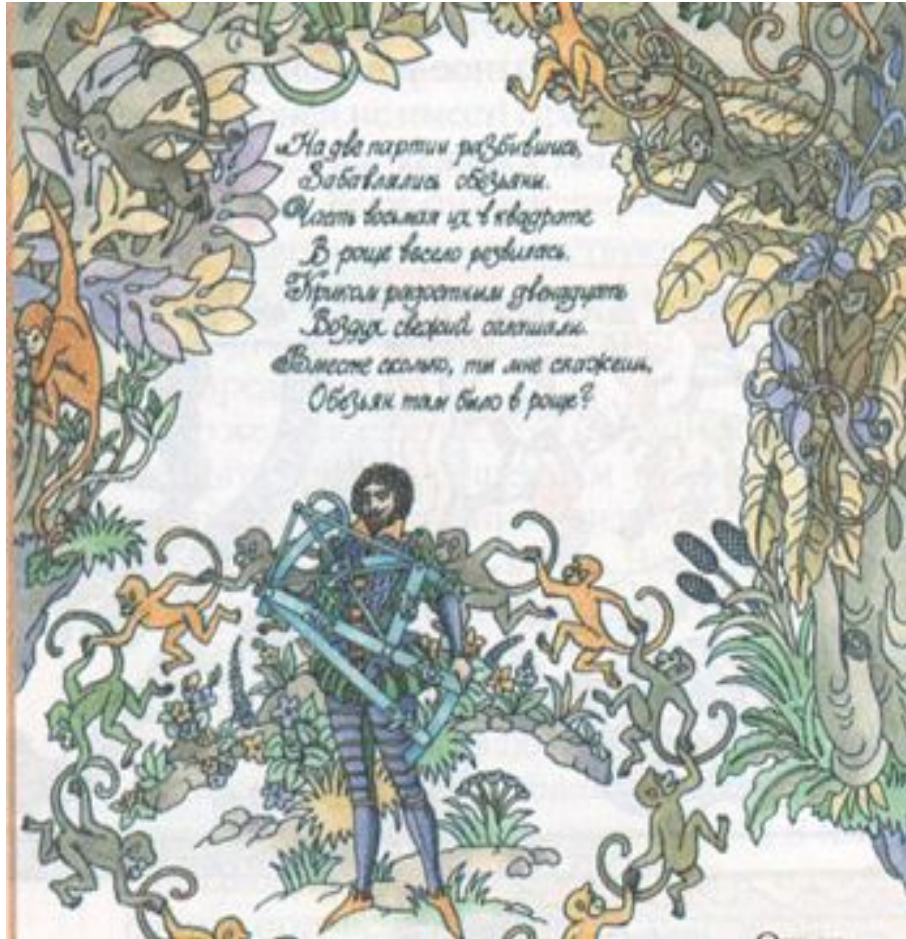 На две партии разбившись,
Забавлялись обезьяны.
Часть восьмая их в квадрате
В роще весело резвилась.
Криком радостным двенадцать
Воздух свежий оглашали.
Вместе сколько, ты мне скажешь,
Обезьян там было в роще?